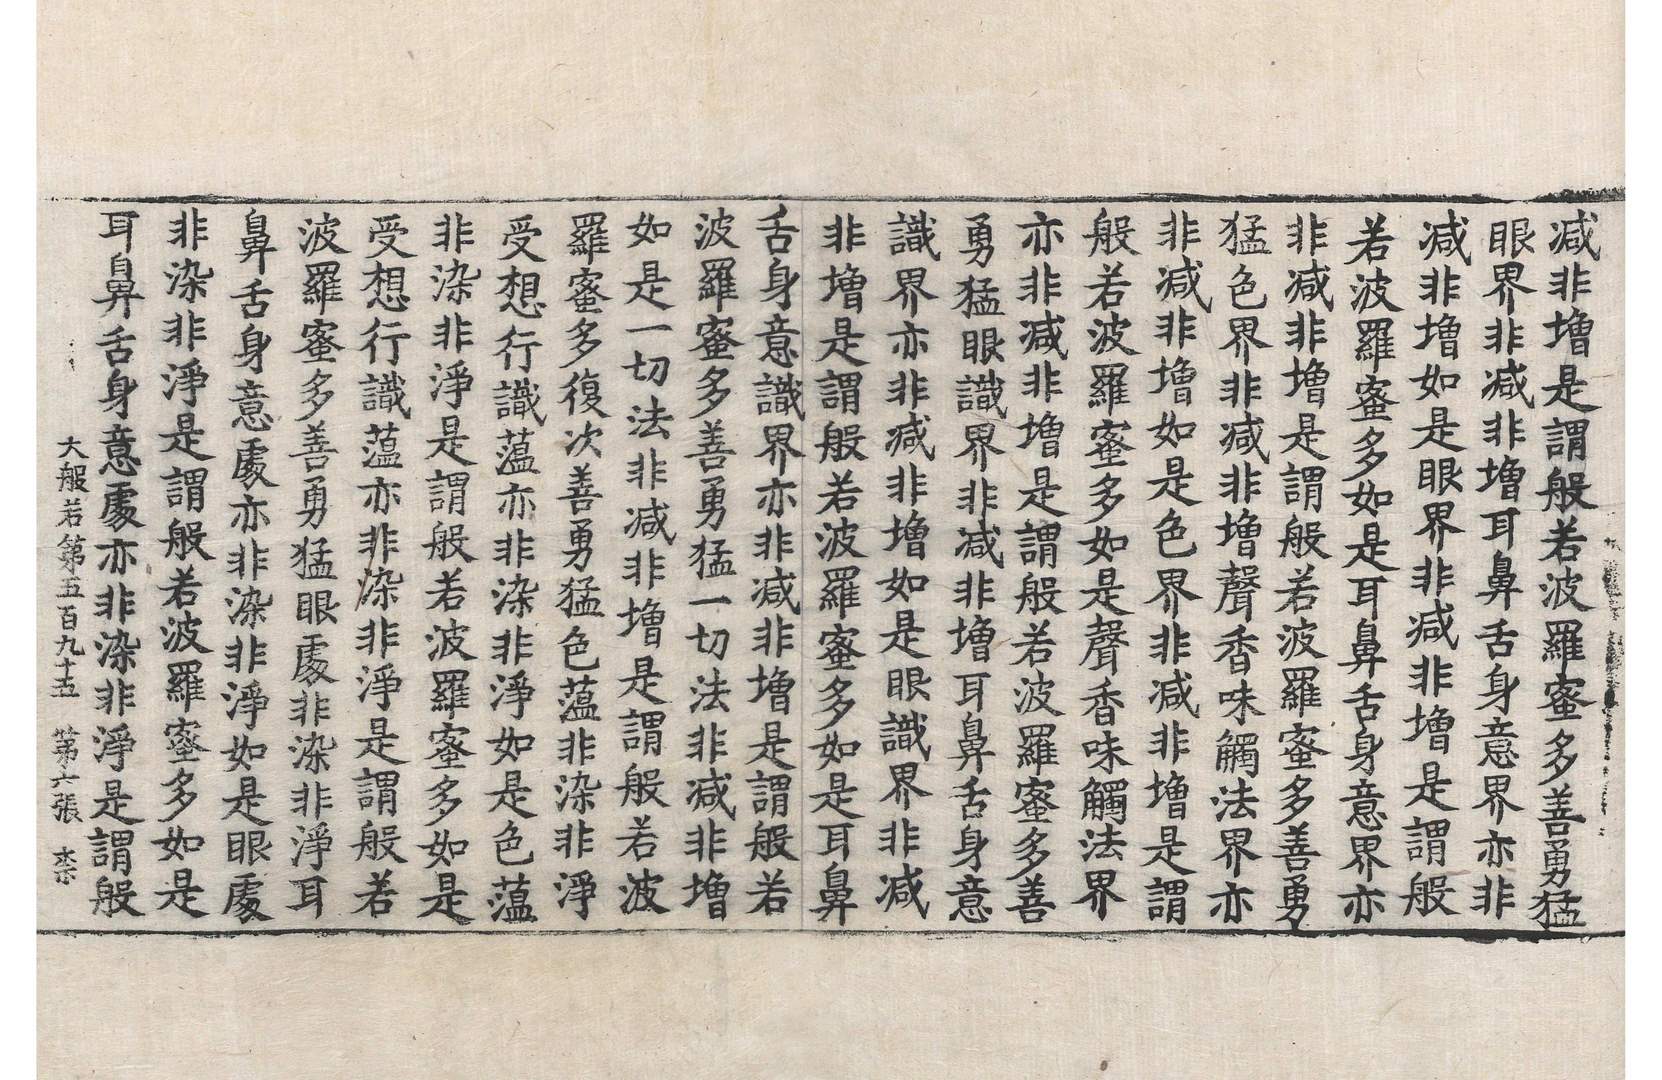 减非增是謂般若波羅蜜多善勇猛
眼界非减非增耳鼻舌身意界亦非
减非增如是眼界非减非增是謂般
若波羅蜜多如是耳鼻舌身意界亦
非减非增是謂般若波羅蜜多善勇
猛色界非减非增聲香味觸法界亦
非减非增如是色界非减非增是謂
般若波羅蜜多如是聲香味觸法界
亦非减非增是謂般若波羅蜜多善
勇猛眼識界非减非增耳鼻舌身意
識界亦非减非增如是眼識界非减
非增是謂般若波羅蜜多如是耳鼻
舌身意識界亦非减非增是謂般若
波羅蜜多善勇猛一切法非减非增
如是一切法非减非增是謂般若波
羅蜜多復次善勇猛色蘊非染非淨
受想行識蘊亦非染非淨如是色蘊
非染非淨是謂般若波羅蜜多如是
受想行識蘊亦非染非淨是謂般若
波羅蜜多善勇猛眼處非染非淨耳
鼻舌身意處亦非染非淨如是眼處
非染非淨是謂般若波羅蜜多如是
耳鼻舌身意處亦非染非淨是謂般
大般若第五百九十五 第六張 柰